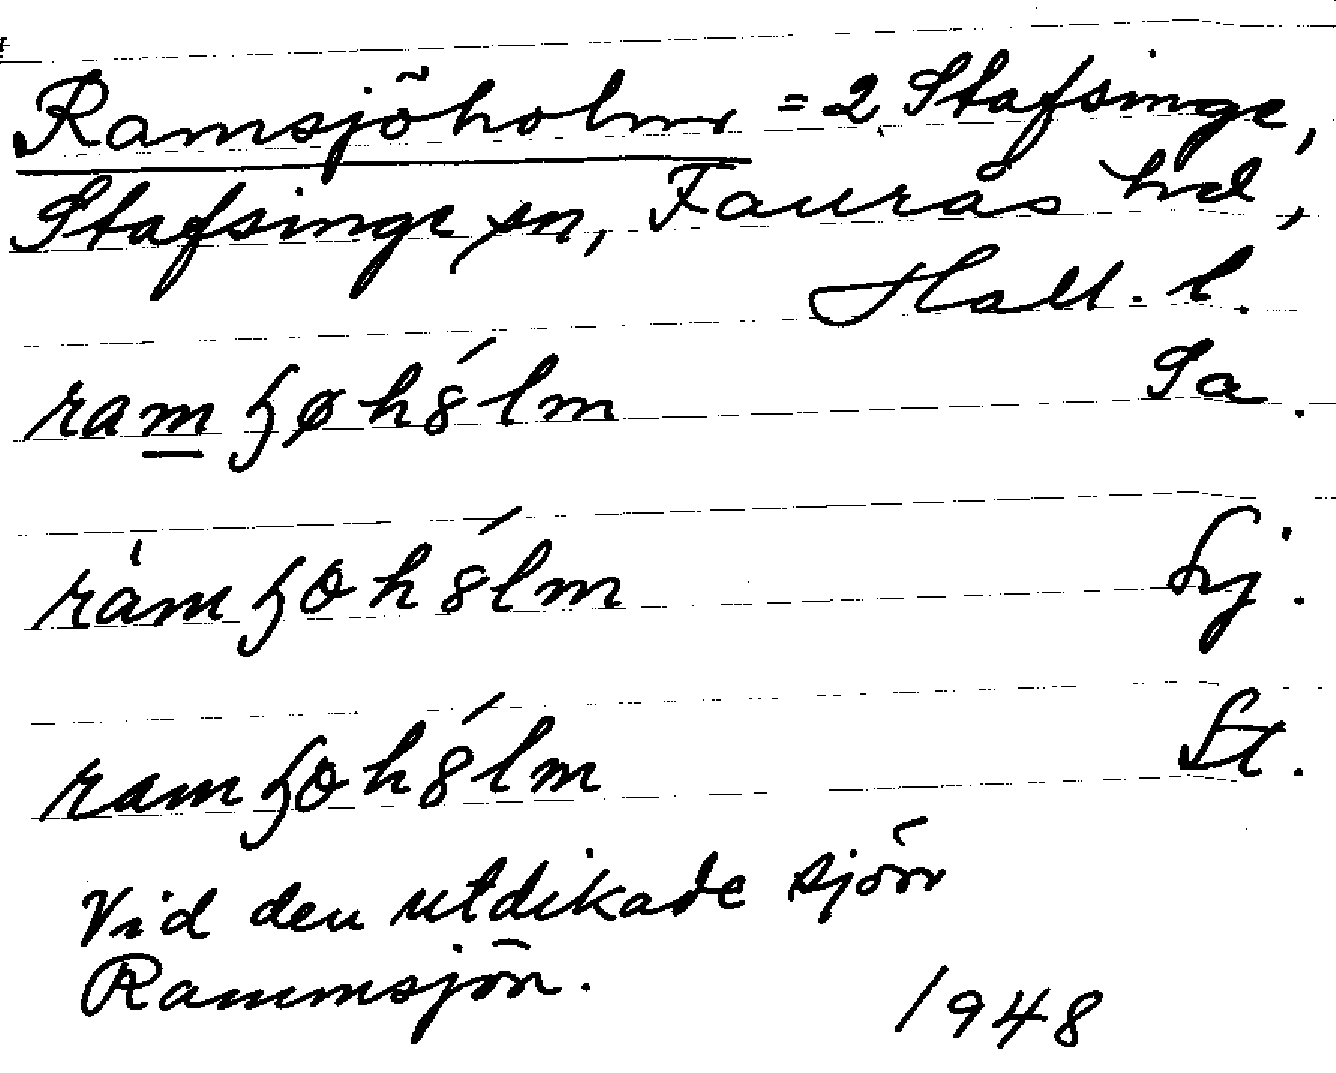 Ramsjöholm = 2 Stafsinge,
Stafsinge sn, Faurås hd,
Hall. l.
ramɧøhȣ́lm Sa.
ràmɧohȣ́lm Lj.
ramɧohȣ́lm St.
Vid den utdikade sjön
Rammsjön.
1948